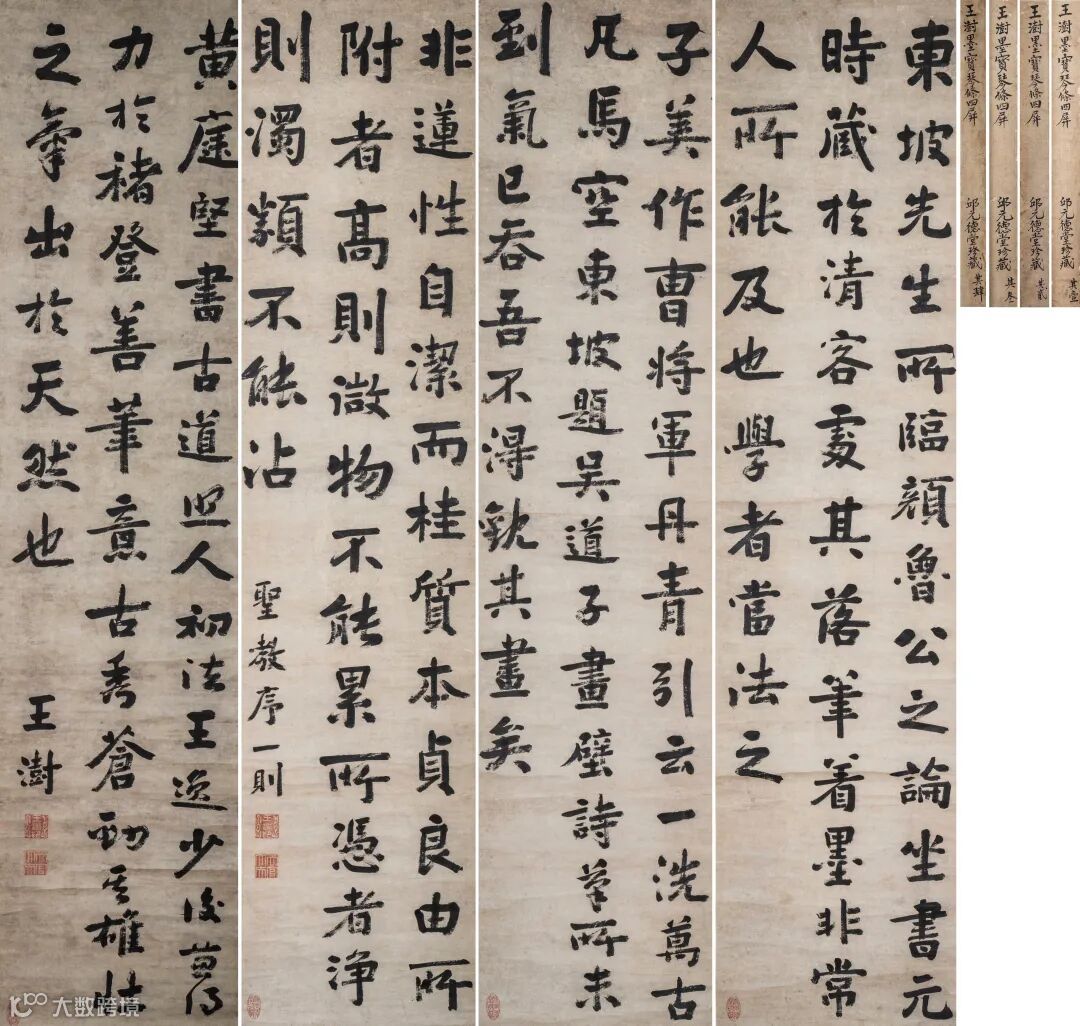 東坡先生所臨顏魯公之論坐書元
時藏於清客處其落筆着墨非常
人所能及也學者當法之
子美作曹將軍丹青引云一洗萬古
凡馬空東坡題吳道子畫壁詩筆所未
到氣已吞吾不得欽其畫矣
非蓮性自潔而桂質本貞良由所
附者高則微物不能累所憑者淨
則濁類不能沾
聖教序一則
黃庭堅書古道照人初法王逸少後得
力於褚登善筆意古秀蒼勁其雄壯
之氣出於天然也
王澍
王澍墨寶琴條四屏 邱元德堂珍藏 其壹
王澍墨寶琴條四屏 邱元德堂珍藏 其貳
王澍墨寶琴條四屏 邱元德堂珍藏 其叁
王澍墨寶琴條四屏 邱元德堂珍藏 其肆
大数跨境